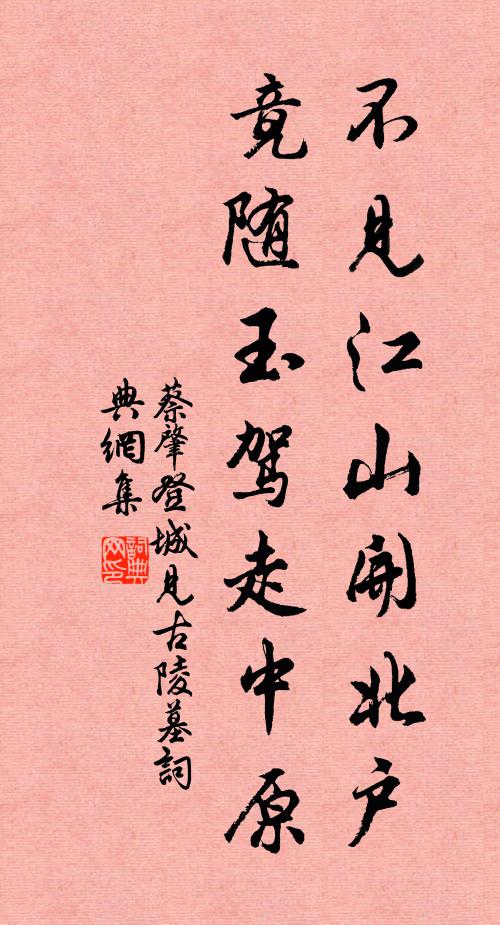 不见江山開北户
竟随玉驾走中原
蔡肇登城見古陵墓詞
典網集
詞典
网印